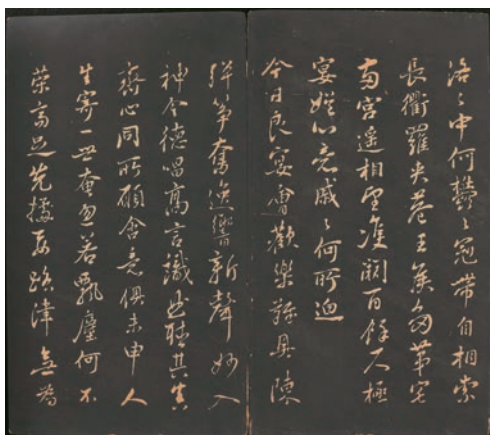 洛〻中何鬱〻冠帶自相索
長衢羅夾巷王侯多第宅
兩宮遙相望雙闕百餘尺極
宴娛心意戚〻何所迫
今日良宴會歡樂難具陳
彈箏奮逸響新聲妙入
神令德唱高言識曲聽其真
齊心同所願含意俱未申人
生寄一世奄忽若飆塵何不
策高足先據要路津無為